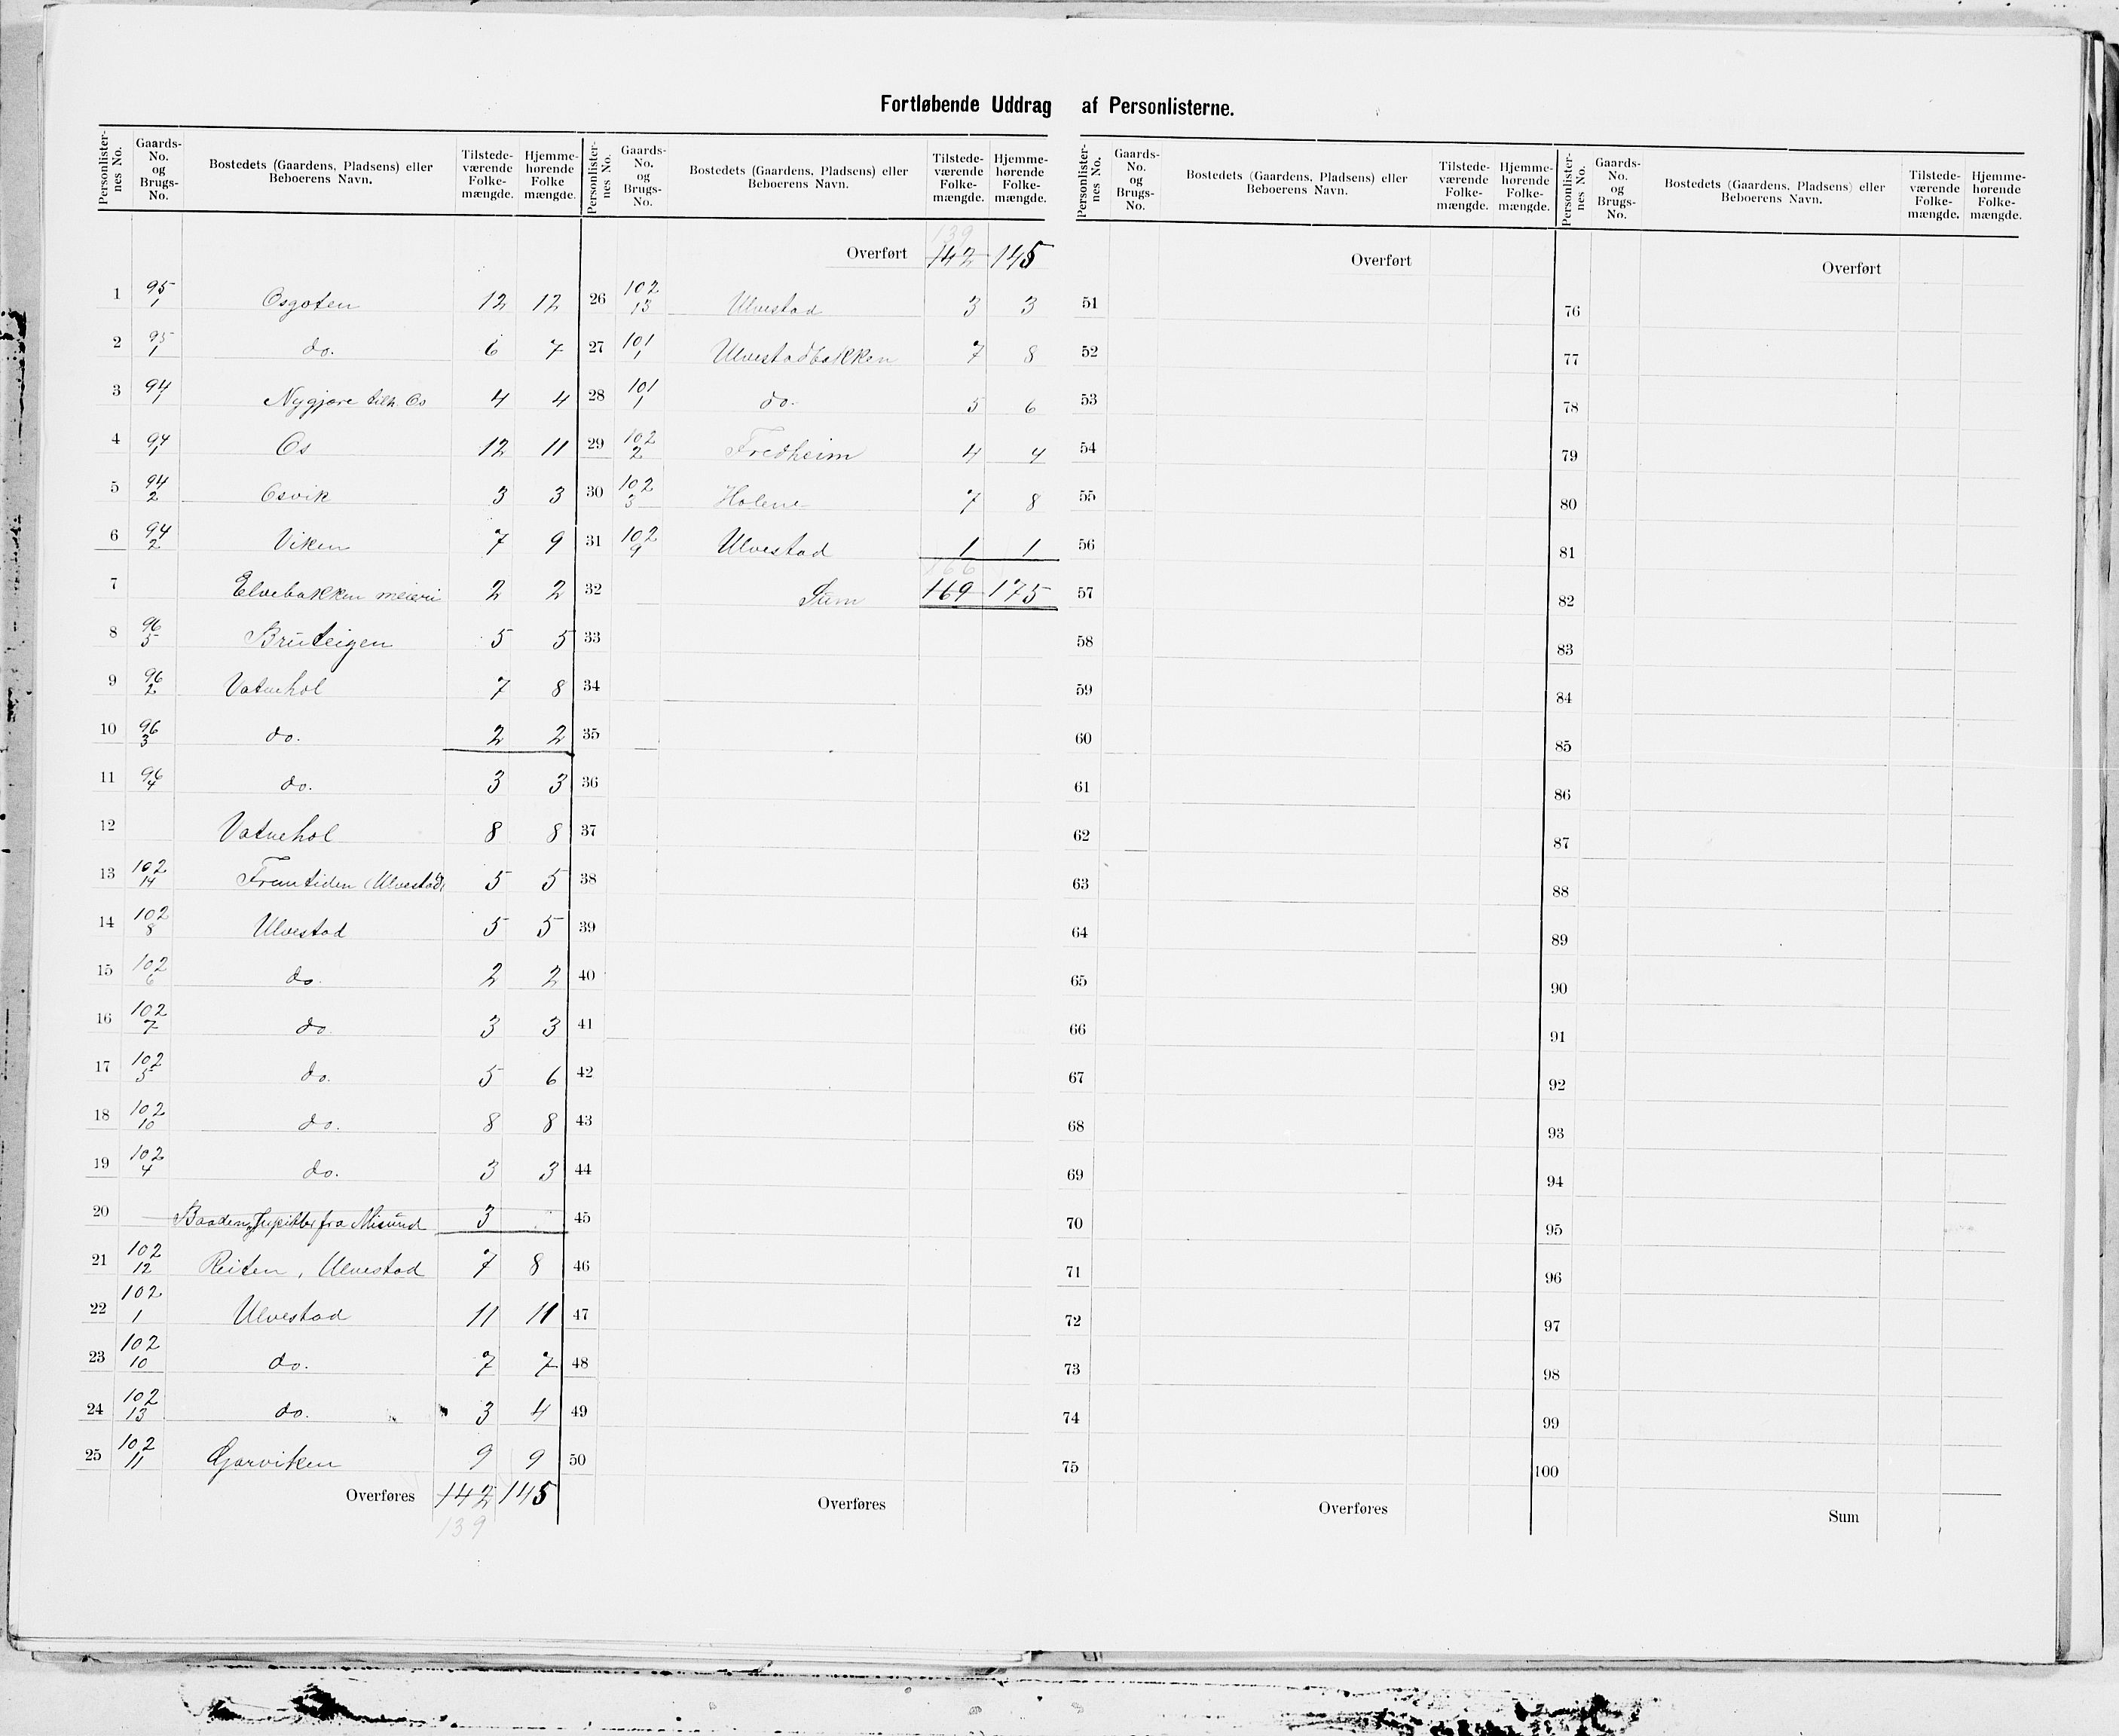 Fortløbende Uddrag af Personlisterne.
Personlister-nes No. Gaards-No. og Brugs-No. Bostedets (Gaardens, Pladsens) eller Beboerens Navn. Tilstede-værende Folke-mængde. Hjemme-hørende Folke mængde.
Personlister-nes No. Gaards-No. og Brugs-No. Bostedets (Gaardens, Pladsens) eller Beboerens Navn. Tilstede-værende Folke-mængde. Hjemme-hørende Folke-mængde.
Personlister-nes No. Gaards-No. og Brugs-No. Bostedets (Gaardens, Pladsens) eller Beboerens Navn. Tilstede-værende Folke-mængde. Hjemme-hørende Folke-mængde.
Personlister-nes No. Gaards-No. og Brugs-No. Bostedets (Gaardens, Pladsens) eller Beboerens Navn. Tilstede-værende Folke-mængde. Hjemme-hørende Folke-mængde.
1 95/1 Osgoten 12 12
2 95/1 do. 6 7
3 94/1 Nygjøre tilh. Os 4 4
4 94/1 Os 12 11
5 94/2 Osvik 3 3
6 94/2 Viken 7 9
7 Elvebakken meieri 2 2
8 96/5 Bruteigen 5 5
9 96/2 Vatnehol 7 8
10 96/3 do. 2 2
11 96/4 do. 3 3
12 Vatnehol 8 8
13 102/14 Framtiden (Ulvestad) 5 5
14 102/8 Ulvestad 5 5
15 102/6 do. 2 2
16 102/7 do. 3 3
17 102/5 do. 5 6
18 102/10 do. 8 8
19 102/4 do. 3 3
20 Baaden "Jupitter fra Misund 3
21 102/12 Reiten, Ulvestad 7 8
22 102/1 Ulvestad 11 11
23 102/10 do. 7 7
24 102/13 do. 3 4
25 102/11 Gjørviken 9 9
Overføres 142 145
139
139
Overført 142 145
26 102/13 Ulvestad 3 3
27 101/1 Ulvestadbakken 7 8
28 101/1 do. 5 6
29 102/2 Fredheim 4 4
30 102/3 Holene 7 8
31 102/9 Ulvestad 1 1
166
32 Sum 169 175
33
34
35
36
37
38
39
40
41
42
43
44
45
46
47
48
49
50
Overføres
Overført
51
52
53
54
55
56
57
58
59
60
61
62
63
64
65
66
67
68
69
70
71
72
73
74
75
Overføres
Overført
76
77
78
79
80
81
82
83
84
85
86
87
88
89
90
91
92
93
94
95
96
97
98
99
100
Sum